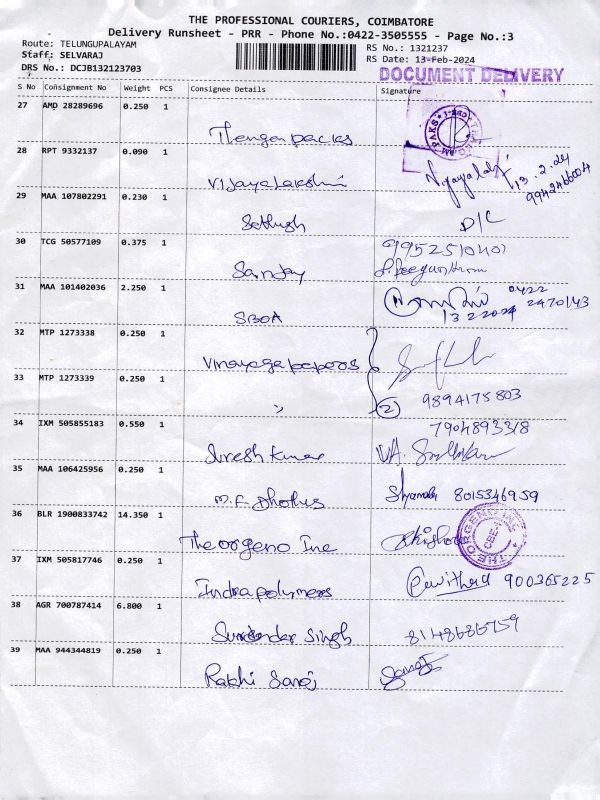 THE PROFESSIONAL COURIERS, COIMBATORE
Delivery Runsheet - PRR - Phone No.:0422-3505555 - Page No.:3
Route: TELUNGUPALAYAM
Staff: SELVARAJ
DRS No.: DCJB132123703
RS No.: 1321237
RS Date: 13-Feb-2024
DOCUMENT DELIVERY
S No Consignment No Weight PCS Consignee Details Signature
27 AMD 28289696 0.250 1
Thenga packs
28 RPT 9332137 0.090 1
Vijayalakshmi
13.2.24
9942466004
29 MAA 107802291 0.230 1
Sathish D/C
30 TCG 50577109 0.375 1
9952510401
Sanjay
31 MAA 101402036 2.250 1
SBOA
0422
2470143
13 2 2024
32 MTP 1273338 0.250 1
Vinayaga papers
33 MTP 1273339 0.250 1
"
2
9894175803
34 IXM 505855183 0.550 1
7904893318
Suresh Kumar
35 MAA 106425956 0.250 1
M.F. Dhotus
Shyamala 8015346959
36 BLR 1900833742 14.350 1
The orgeno Inc
Kishor
THE ORGENO INC
CBE
37 IXM 505817746 0.250 1
Indra polymers
Pavithra 900365225
38 AGR 700787414 6.800 1
Surender Singh
39 MAA 944344819 0.250 1
Rakhi Saroj
Saroj